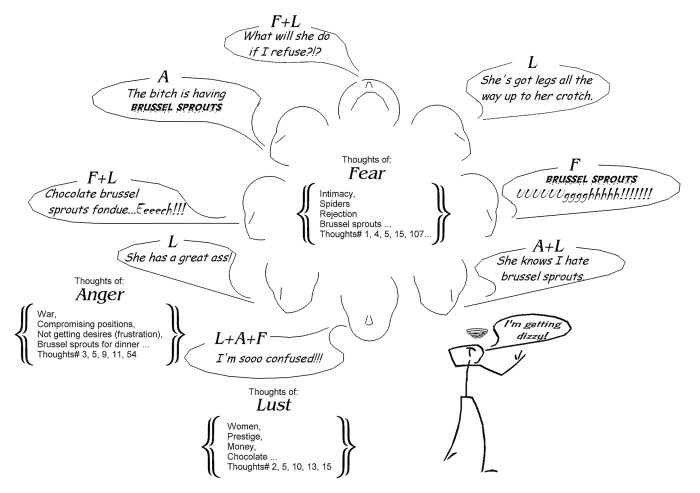 F+L
What will she do
if I refuse?!?
A
The bitch is having
BRUSSEL SPROUTS
L
She's got legs all the
way up to her crotch.
F+L
Chocolate brussel
sprouts fondue...Eeeech!!!
Thoughts of:
Fear
Intimacy,
Spiders
Rejection
Brussel sprouts ...
Thoughts# 1, 4, 5, 15, 107...
F
BRUSSEL SPROUTS
UUUUUUggghhhhh!!!!!!!
L
She has a great ass!
A+L
She knows I hate
brussel sprouts.
Thoughts of:
Anger
War,
Compromising positions,
Not getting desires (frustration),
Brussel sprouts for dinner ...
Thoughts# 3, 5, 9, 11, 54
L+A+F
I'm sooo confused!!!
I'm getting
dizzy!
Thoughts of:
Lust
Women,
Prestige,
Money,
Chocolate ...
Thoughts# 2, 5, 10, 13, 15